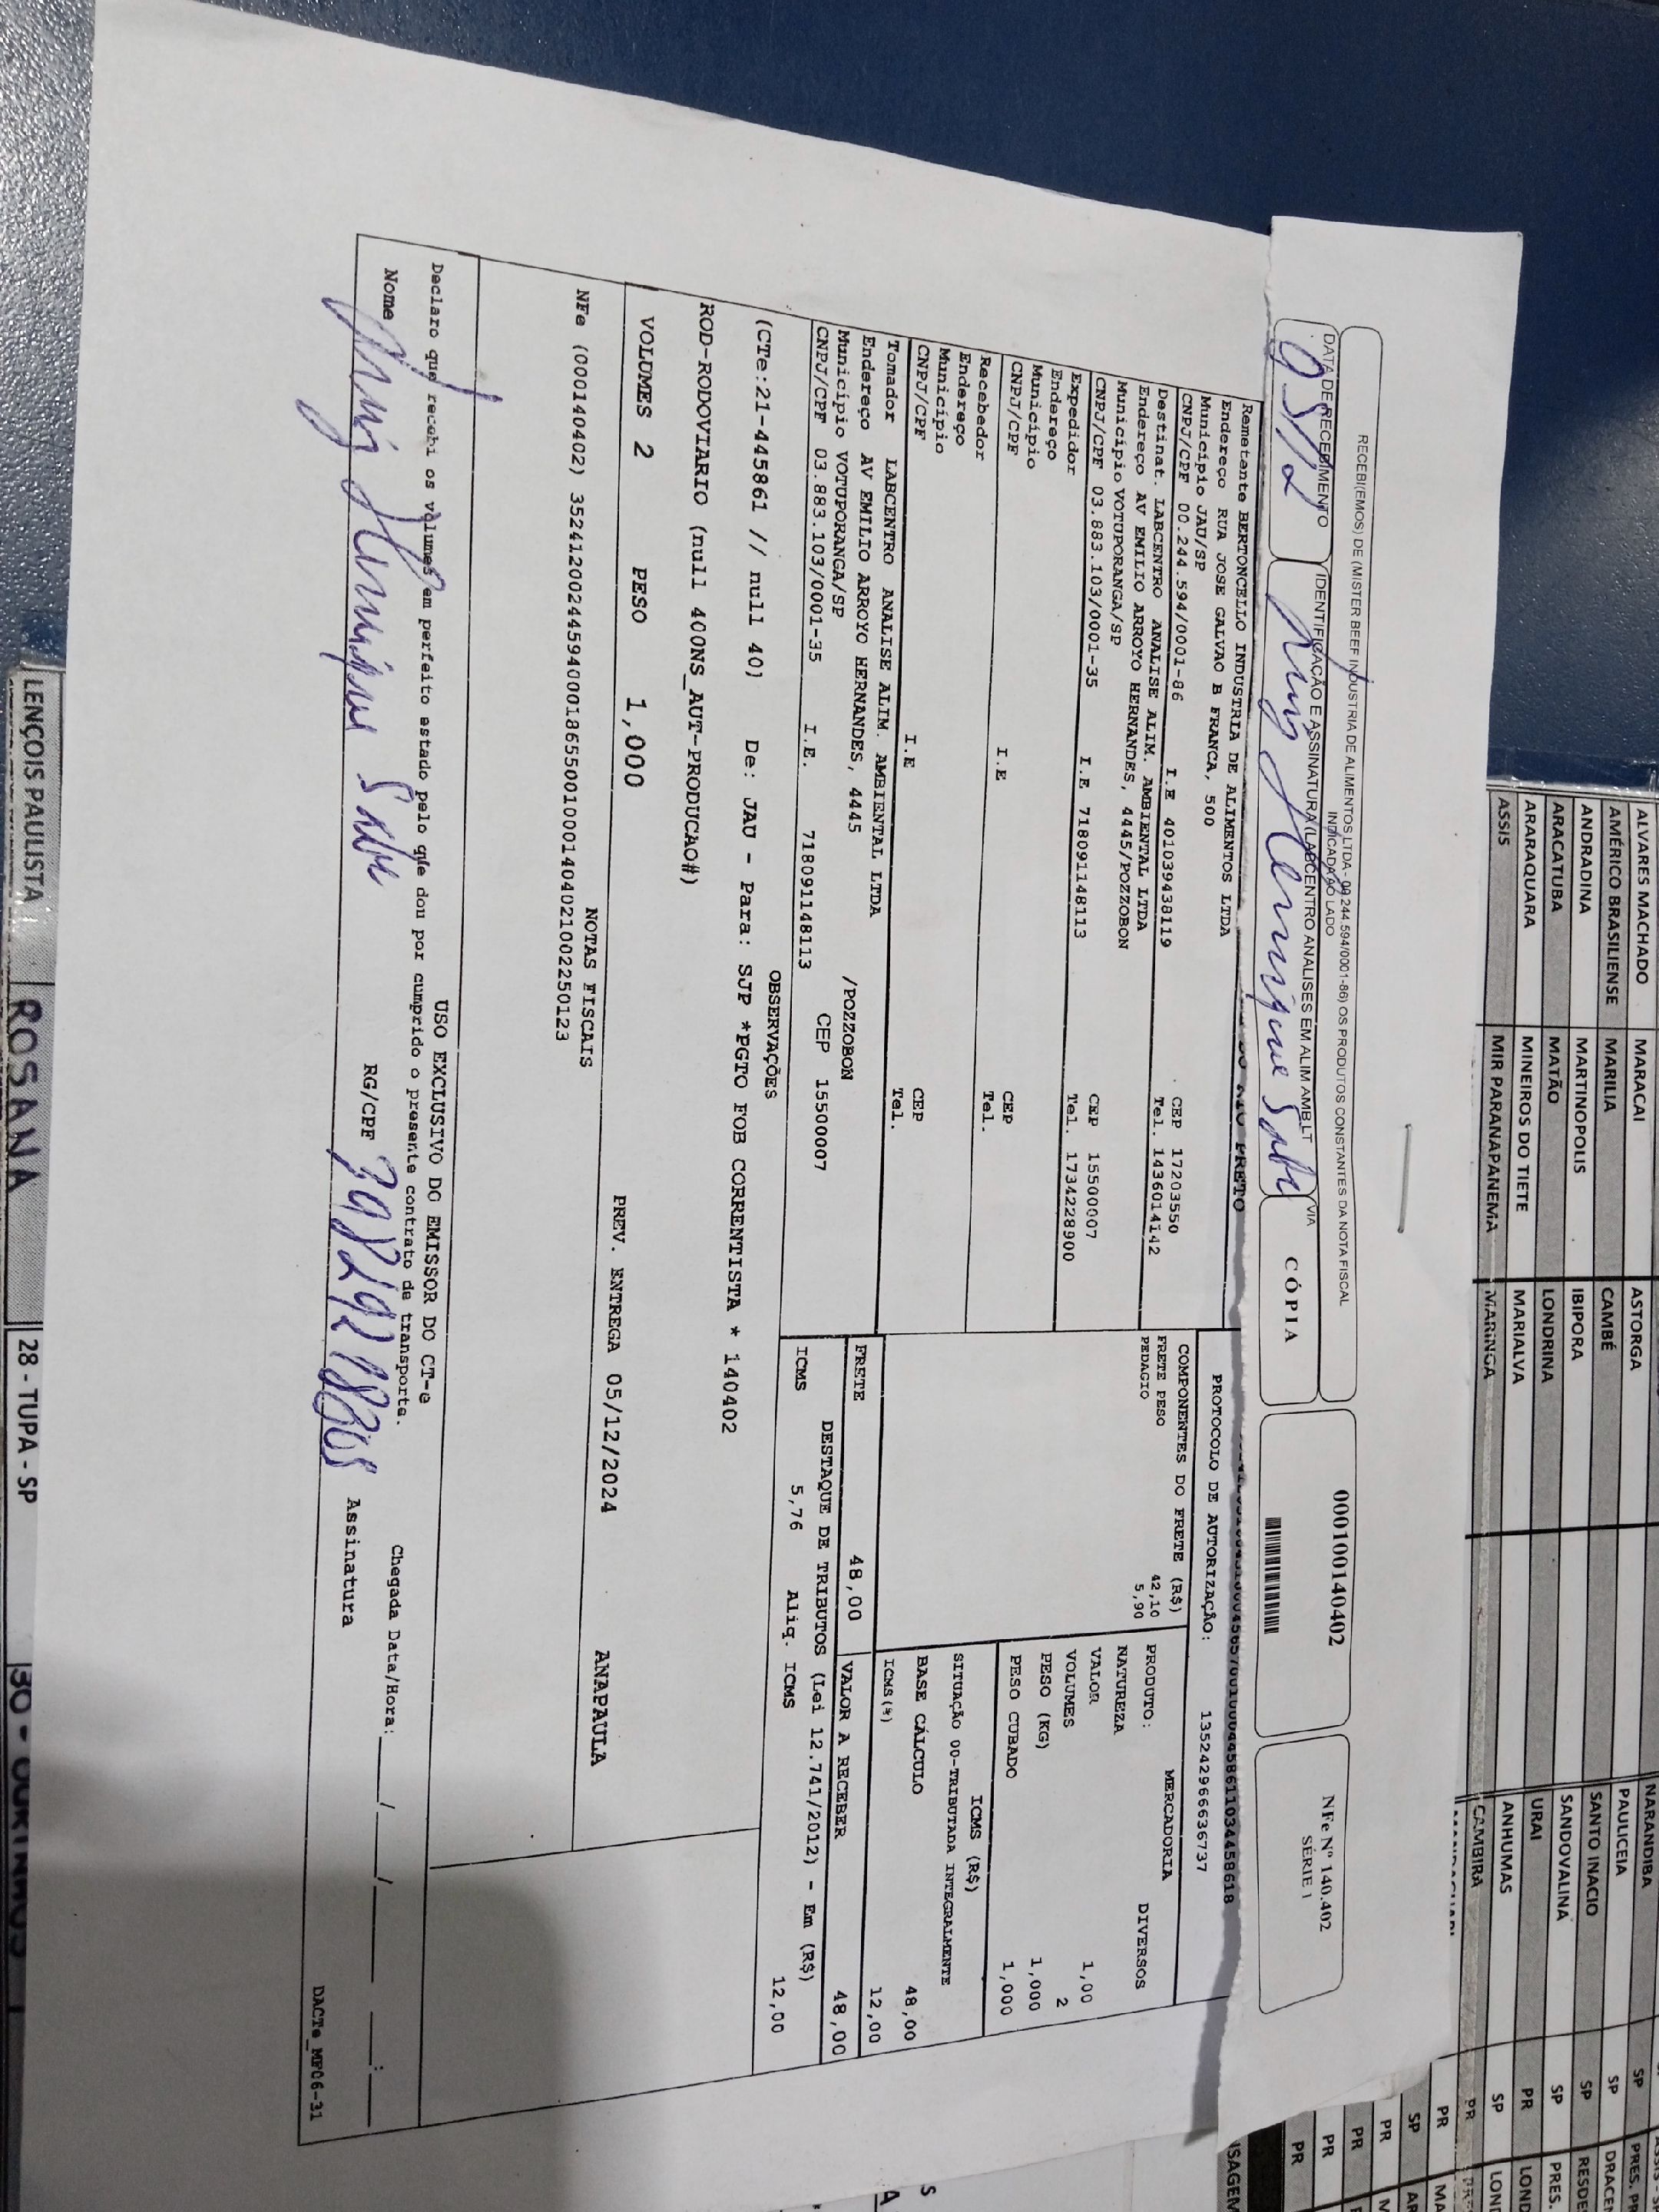 RECEBI(EMOS) DE (MISTER BEEF INDUSTRIA DE ALIMENTOS LTDA - 00.244.594/0001-86) OS PRODUTOS CONSTANTES DA NOTA FISCAL
INDICADA AO LADO
DATA DE RECEBIMENTO
IDENTIFICAÇÃO E ASSINATURA (LABCENTRO ANALISES EM ALIM AMB.LT
VIA
05/12
Henrique
CÓPIA
000100140402
NFe Nº 140.402
SÉRIE 1
PRETO
Remetente BERTONCELLO INDUSTRIA DE ALIMENTOS LTDA
Endereço RUA JOSE GALVAO B FRANCA, 500
Município JAU/SP CEP 17203550
CNPJ/CPF 00.244.594/0001-86 I.E 401039438119 Tel. 1436014142
Destinat. LABCENTRO ANALISE ALIM. AMBIENTAL LTDA
Endereço AV EMILIO ARROYO HERNANDES, 4445/POZZOBON
Município VOTUPORANGA/SP CEP 15500007
CNPJ/CPF 03.883.103/0001-35 I.E 718091148113 Tel. 1734228900
Expedidor
Endereço
Município CEP
CNPJ/CPF I.E Tel.
Recebedor
Endereço
Município CEP
CNPJ/CPF I.E Tel.
Tomador LABCENTRO ANALISE ALIM. AMBIENTAL LTDA
Endereço AV EMILIO ARROYO HERNANDES, 4445 /POZZOBON
Município VOTUPORANGA/SP CEP 15500007
CNPJ/CPF 03.883.103/0001-35 I.E. 718091148113
PROTOCOLO DE AUTORIZAÇÃO: 135242966636737
COMPONENTES DO FRETE (R$)
FRETE PESO 42,10
PEDAGIO 5,90
MERCADORIA
PRODUTO: DIVERSOS
NATUREZA
VALOR 1,00
VOLUMES 2
PESO (KG) 1,000
PESO CUBADO 1,000
ICMS (R$)
SITUAÇÃO 00-TRIBUTADA INTEGRALMENTE
BASE CÁLCULO 48,00
ICMS(%) 12,00
FRETE 48,00 VALOR A RECEBER 48,00
DESTAQUE DE TRIBUTOS (Lei 12.741/2012) - Em (R$)
ICMS 5,76 Aliq. ICMS 12,00
OBSERVAÇÕES
(CTe:21-445861 // null 40) De: JAU - Para: SJP *PGTO FOB CORRENTISTA * 140402
ROD-RODOVIARIO (null 400NS_AUT-PRODUCAO#)
VOLUMES 2 PESO 1,000 PREV. ENTREGA 05/12/2024 ANAPAULA
NOTAS FISCAIS
NFe (000140402) 35241200244594000186550010001404021002250123
USO EXCLUSIVO DO EMISSOR DO CT-e
Declaro que recebi os volumes em perfeito estado pelo que dou por cumprido o presente contrato de transporte.
Chegada Data/Hora: ___/___/_____ ___:___
Nome Henrique RG/CPF Assinatura
DACTe_MF06-31
ALVARES MACHADO MARACAI ASTORGA NARANDIBA SP
AMÉRICO BRASILIENSE MARILIA CAMBÉ PAULICEIA SP
ANDRADINA MARTINOPOLIS IBIPORA SANTO INACIO SP
ARACATUBA MATÃO LONDRINA SANDOVALINA SP
ARARAQUARA MINEIROS DO TIETE MARIALVA URAI PR
ASSIS MIR PARANAPANEMA MARINGA ANHUMAS SP
CAMBIRA PR
LENÇOIS PAULISTA ROSANA 28 - TUPA - SP